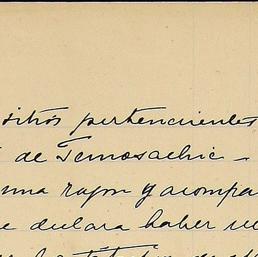 sitios pertenecientes
de Temosachic -
una razon y acompa
e declara haber re